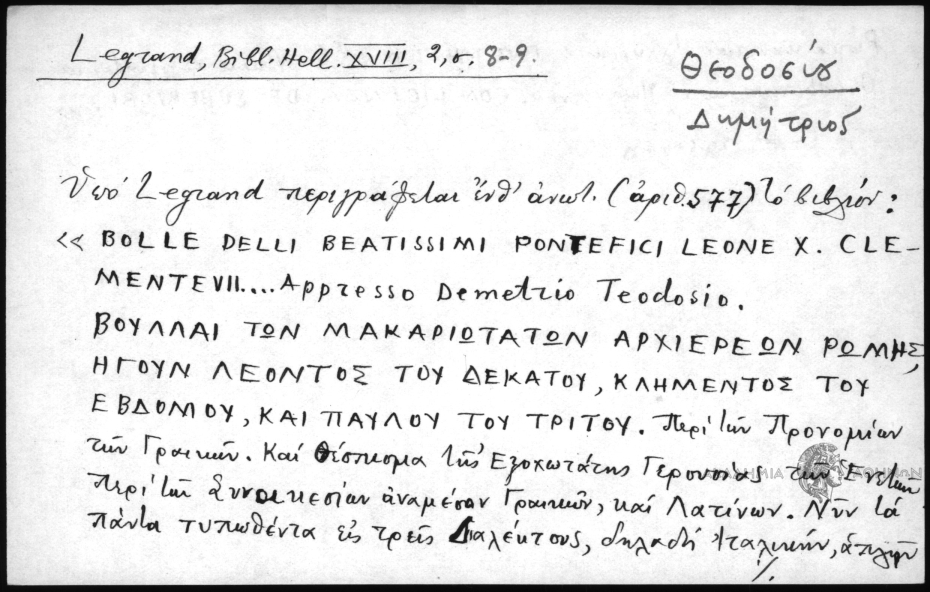 Legrand, Bibl. Hell. XVIII, 2, σ. 8-9.
Θεοδοσίου
Δημήτριος
Ὑπό Legrand περιγράφεται ἔνθ' ἀνωτ. (ἀριθ. 577) τό βιβλίον:
<< BOLLE DELLI BEATISSIMI PONTEFICI LEONE X. CLE-
MENTE VII.... Appresso Demetrio Teodosio.
ΒΟΥΛΛΑΙ ΤΩΝ ΜΑΚΑΡΙΩΤΑΤΩΝ ΑΡΧΙΕΡΕΩΝ ΡΩΜΗΣ,
ΗΓΟΥΝ ΛΕΟΝΤΟΣ ΤΟΥ ΔΕΚΑΤΟΥ, ΚΛΗΜΕΝΤΟΣ ΤΟΥ
ΕΒΔΟΜΟΥ, ΚΑΙ ΠΑΥΛΟΥ ΤΟΥ ΤΡΙΤΟΥ. Περί τῶν Προνομίων
τῶν Γραικῶν. Καί Θέσπισμα τῆς Ἐξοχωτάτης Γερουσίας τῶν Ἐνετῶν
Περί τῶν Συνοικεσίων ἀναμέσον Γραικῶν, καί Λατίνων. Νῦν τά
πάντα τυπωθέντα εἰς τρεῖς Διαλέκτους, δηλαδή Ἰταλικήν, ἁπλῆν
./.